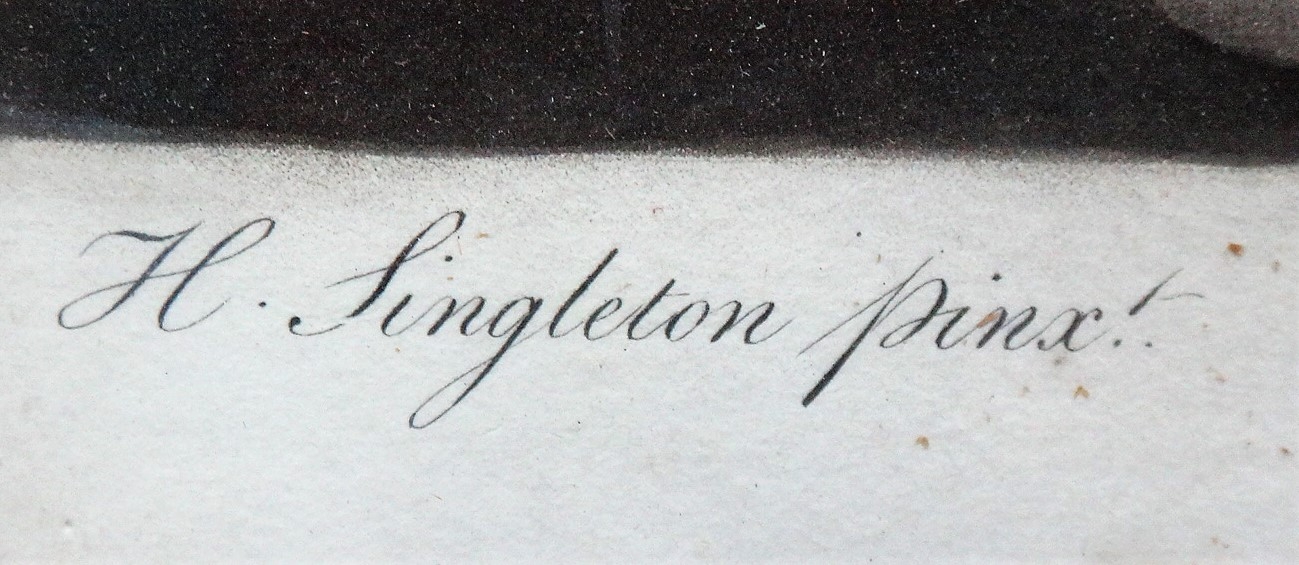 H. Singleton pinx.t